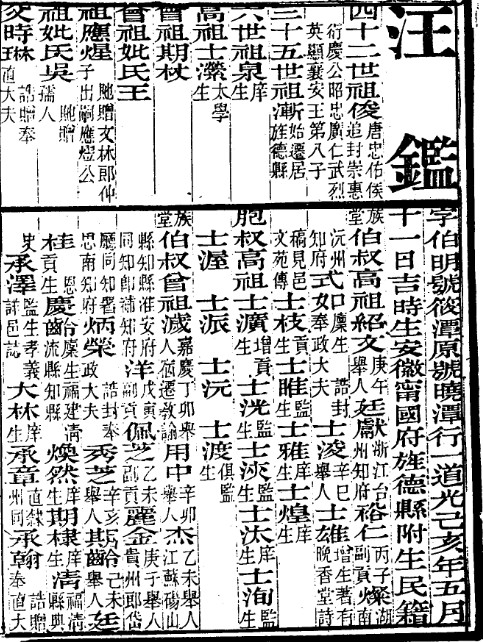 汪鑑
字伯明號筱潭原號曉潭行一道光己亥年五月
十一日吉時生安徽甯國府旌德縣附生民籍
四十二世祖俊 唐忠佑侯 追封崇惠
衍慶公昭忠廣仁武烈
英顯襄安王第八子
三十五世祖漸 始遷居 旌德縣
六世祖泉 庠生
高祖士瀠 太學生
曾祖期杖
曾祖妣氏王
祖應煋 貤贈文林郎仲 子出嗣應燈公
祖妣氏吳 貤贈 孺人
父時琳 誥贈奉 直大夫
族堂伯叔高祖紹文 庚午舉人 廷獻 浙江台州知府 裕仁 丙子副貢 燦 湖南
沅州知府 式口 廩生 誥封奉政大夫 士淩 辛巳舉人 士雄 增生著有晚香堂詩
稿見邑文苑傳 士枝 貢生 士睢 監生 士雅 庠生 士煌 庠生
胞叔高祖士瀇 增貢生 士洸 監生 士浹 監生 士汰 庠生 士洵 監生
士渥 士派 士沅 士渡 俱監生
族堂伯叔曾祖減 嘉慶丁卯舉人 傾遷教諭 用中 辛卯舉人 杰 乙未舉人 江蘇碭山
縣知縣淮安府同知邳補知府 洋 戊寅副貢 佩芝 乙未副貢 麗金 庚子舉人 貴州郎岱
廳同知署思南知府 炳榮 誥封奉政大夫 秀芝 辛亥舉人 其齒 己未舉人 廷
桂 恩貢生 慶齡 廩生福建清流縣知縣 煥然 庠生 期棣 庠生 清 福清縣典
史 承澤 監生孝義詳邑誌 大林 庠生 承章 直隸州同 承翰 誥贈奉直大